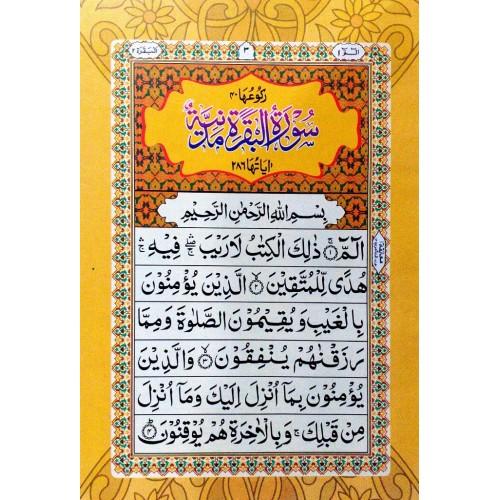 الٓمّٓ ١
٣
البقرة ٢
رکوعها ٤٠
سُوْرَةُ الْبَقَرَةِ مَدَنِيَّةٌ
اٰیَاتُهَا ٢٨٦
بِسْمِ اللّٰهِ الرَّحْمٰنِ الرَّحِيْمِ
الٓمّٓ ۚ‏﴿۱﴾ ذٰلِكَ الْكِتٰبُ لَا رَيْبَ ۛۖۚ فِيْهِ ۛۚ
هُدًى لِّلْمُتَّقِيْنَ ۙ‏﴿۲﴾ الَّذِيْنَ يُؤْمِنُوْنَ
بِالْغَيْبِ وَ يُقِيْمُوْنَ الصَّلٰوةَ وَ مِمَّا
رَزَقْنٰهُمْ يُنْفِقُوْنَ ۙ‏﴿۳﴾ وَالَّذِيْنَ
يُؤْمِنُوْنَ بِمَاۤ اُنْزِلَ اِلَيْكَ وَمَاۤ اُنْزِلَ
مِنْ قَبْلِكَ ۚ وَ بِالْاٰخِرَةِ هُمْ يُوْقِنُوْنَ ؕ‏﴿۴﴾